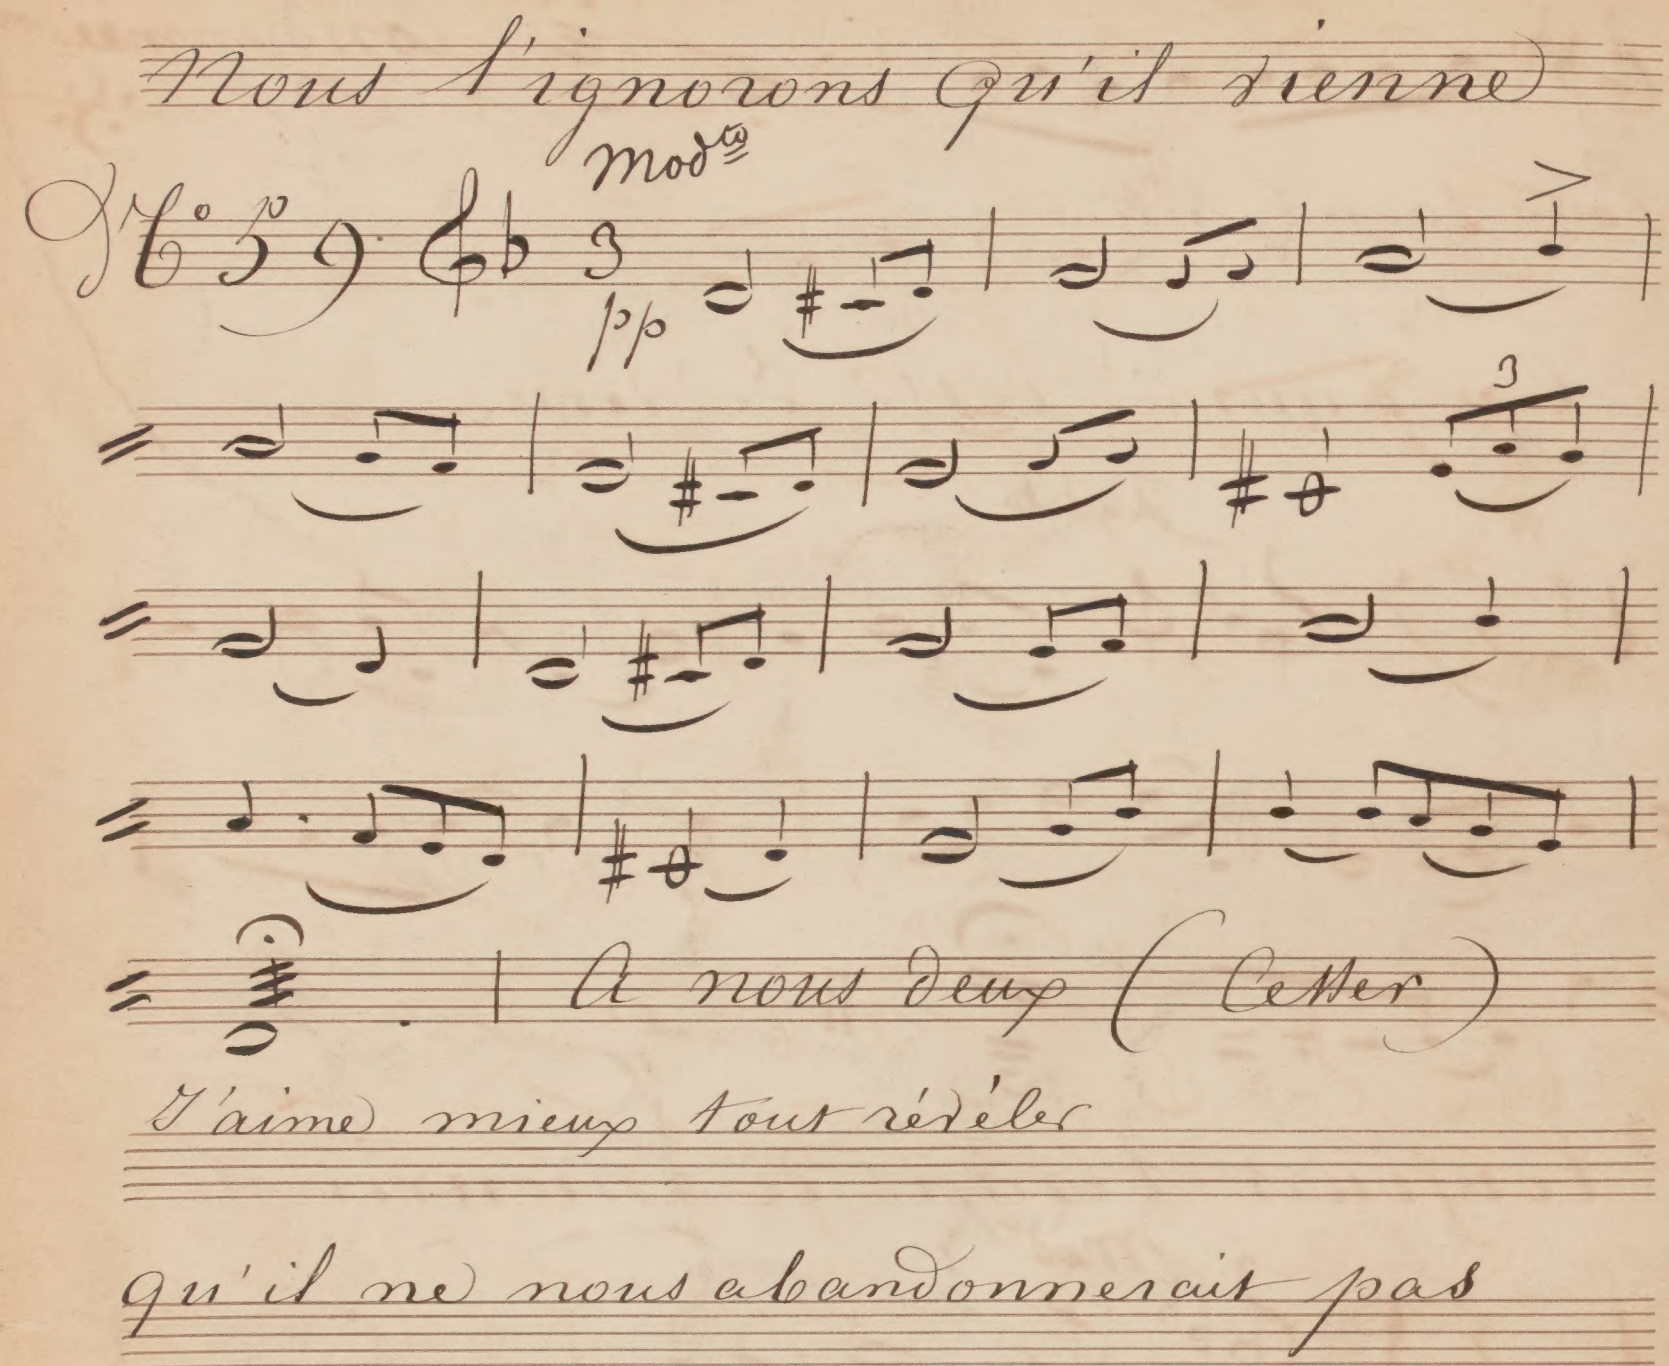 Nous l'ignorons qu'il vienne
Mod^to
N° 39. 3
pp
3
A nous deux (Cesser)
J'aime mieux tout révéler
qu'il ne nous abandonnerait pas